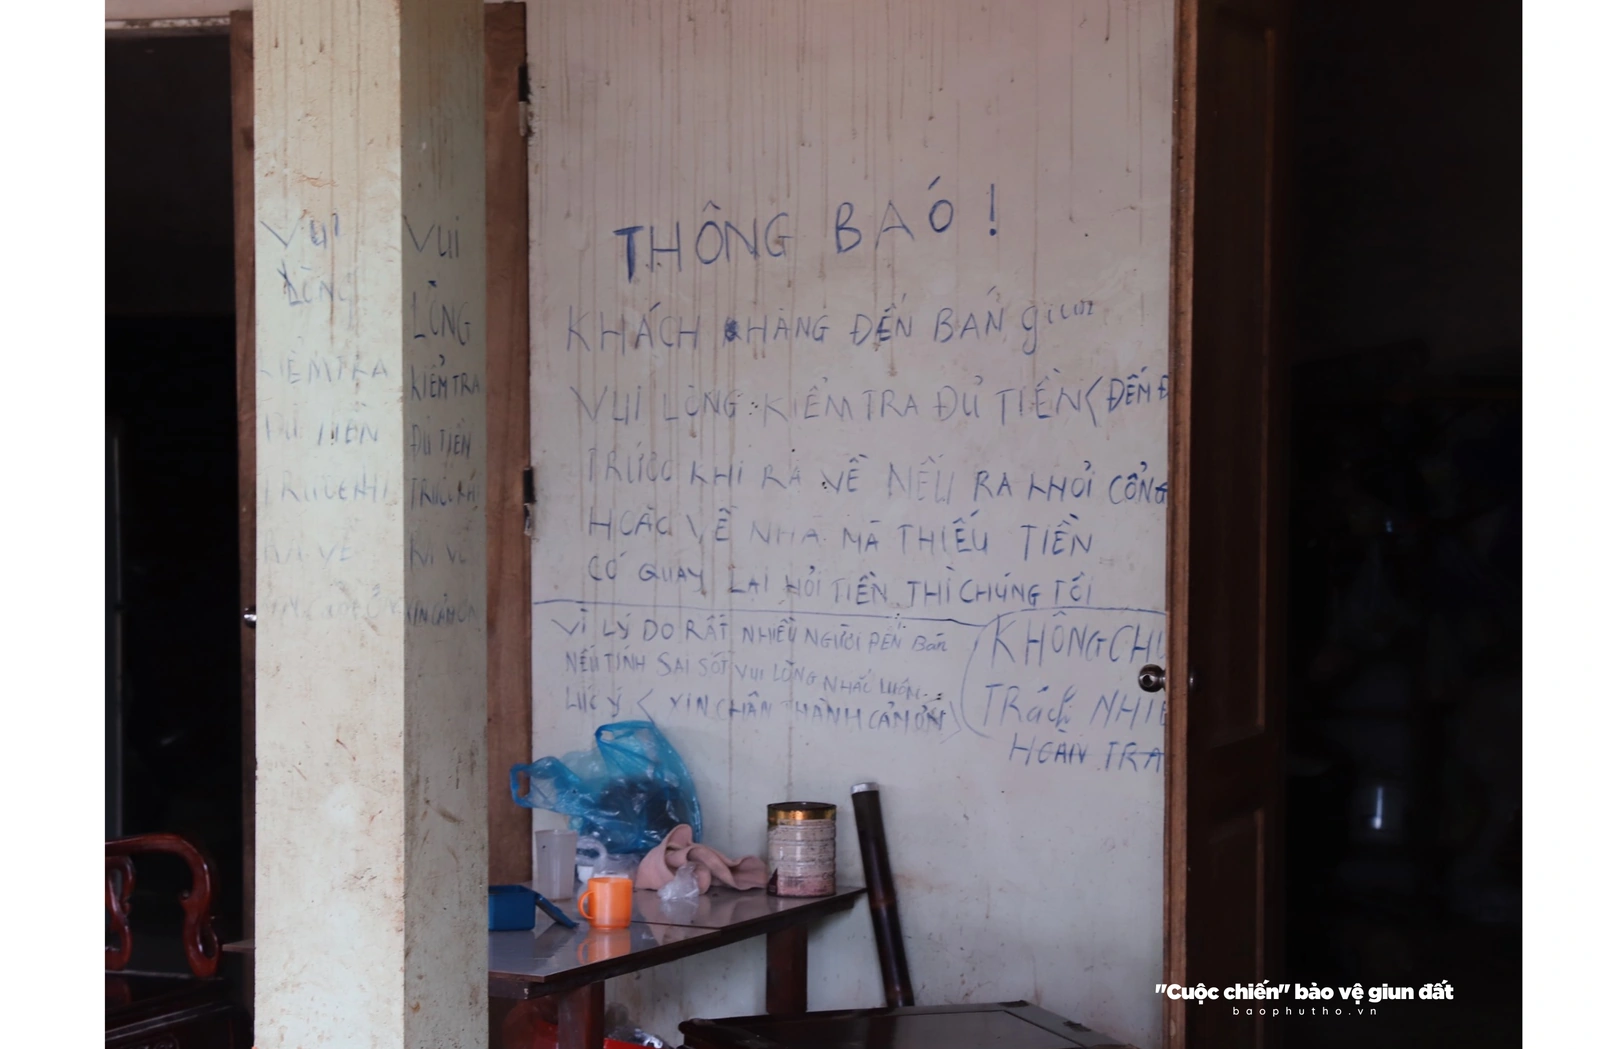 VUI
LÒNG
KIỂM TRA
ĐỦ TIỀN
TRƯỚC KHI
RA VỀ
VUI
LÒNG
KIỂM TRA
ĐỦ TIỀN
TRƯỚC KHI
RA VỀ
XIN CẢM ƠN
THÔNG BAÓ !
KHÁCH HÀNG ĐẾN BÁN giun
VUI LÒNG KIỂM TRA ĐỦ TIỀN ( ĐẾM Đ
TRƯỚC KHI RA VỀ NẾU RA KHỎI CỔNG
HOẶC VỀ NHÀ MÀ THIẾU TIỀN
CÓ QUAY LẠI HỎI TIỀN THÌ CHÚNG TÔI
KHÔNG CHỊ
TRÁCH NHIỆ
HOÀN TRẢ
VÌ LÝ DO RẤT NHIỀU NGƯỜI ĐẾN Bán
NẾU TÍNH SAI SÓT VUI LÒNG NHẮC LUÔN
LƯU Ý ( XIN CHÂN THÀNH CẢM ƠN )
"Cuộc chiến" bảo vệ giun đất
baophutho.vn